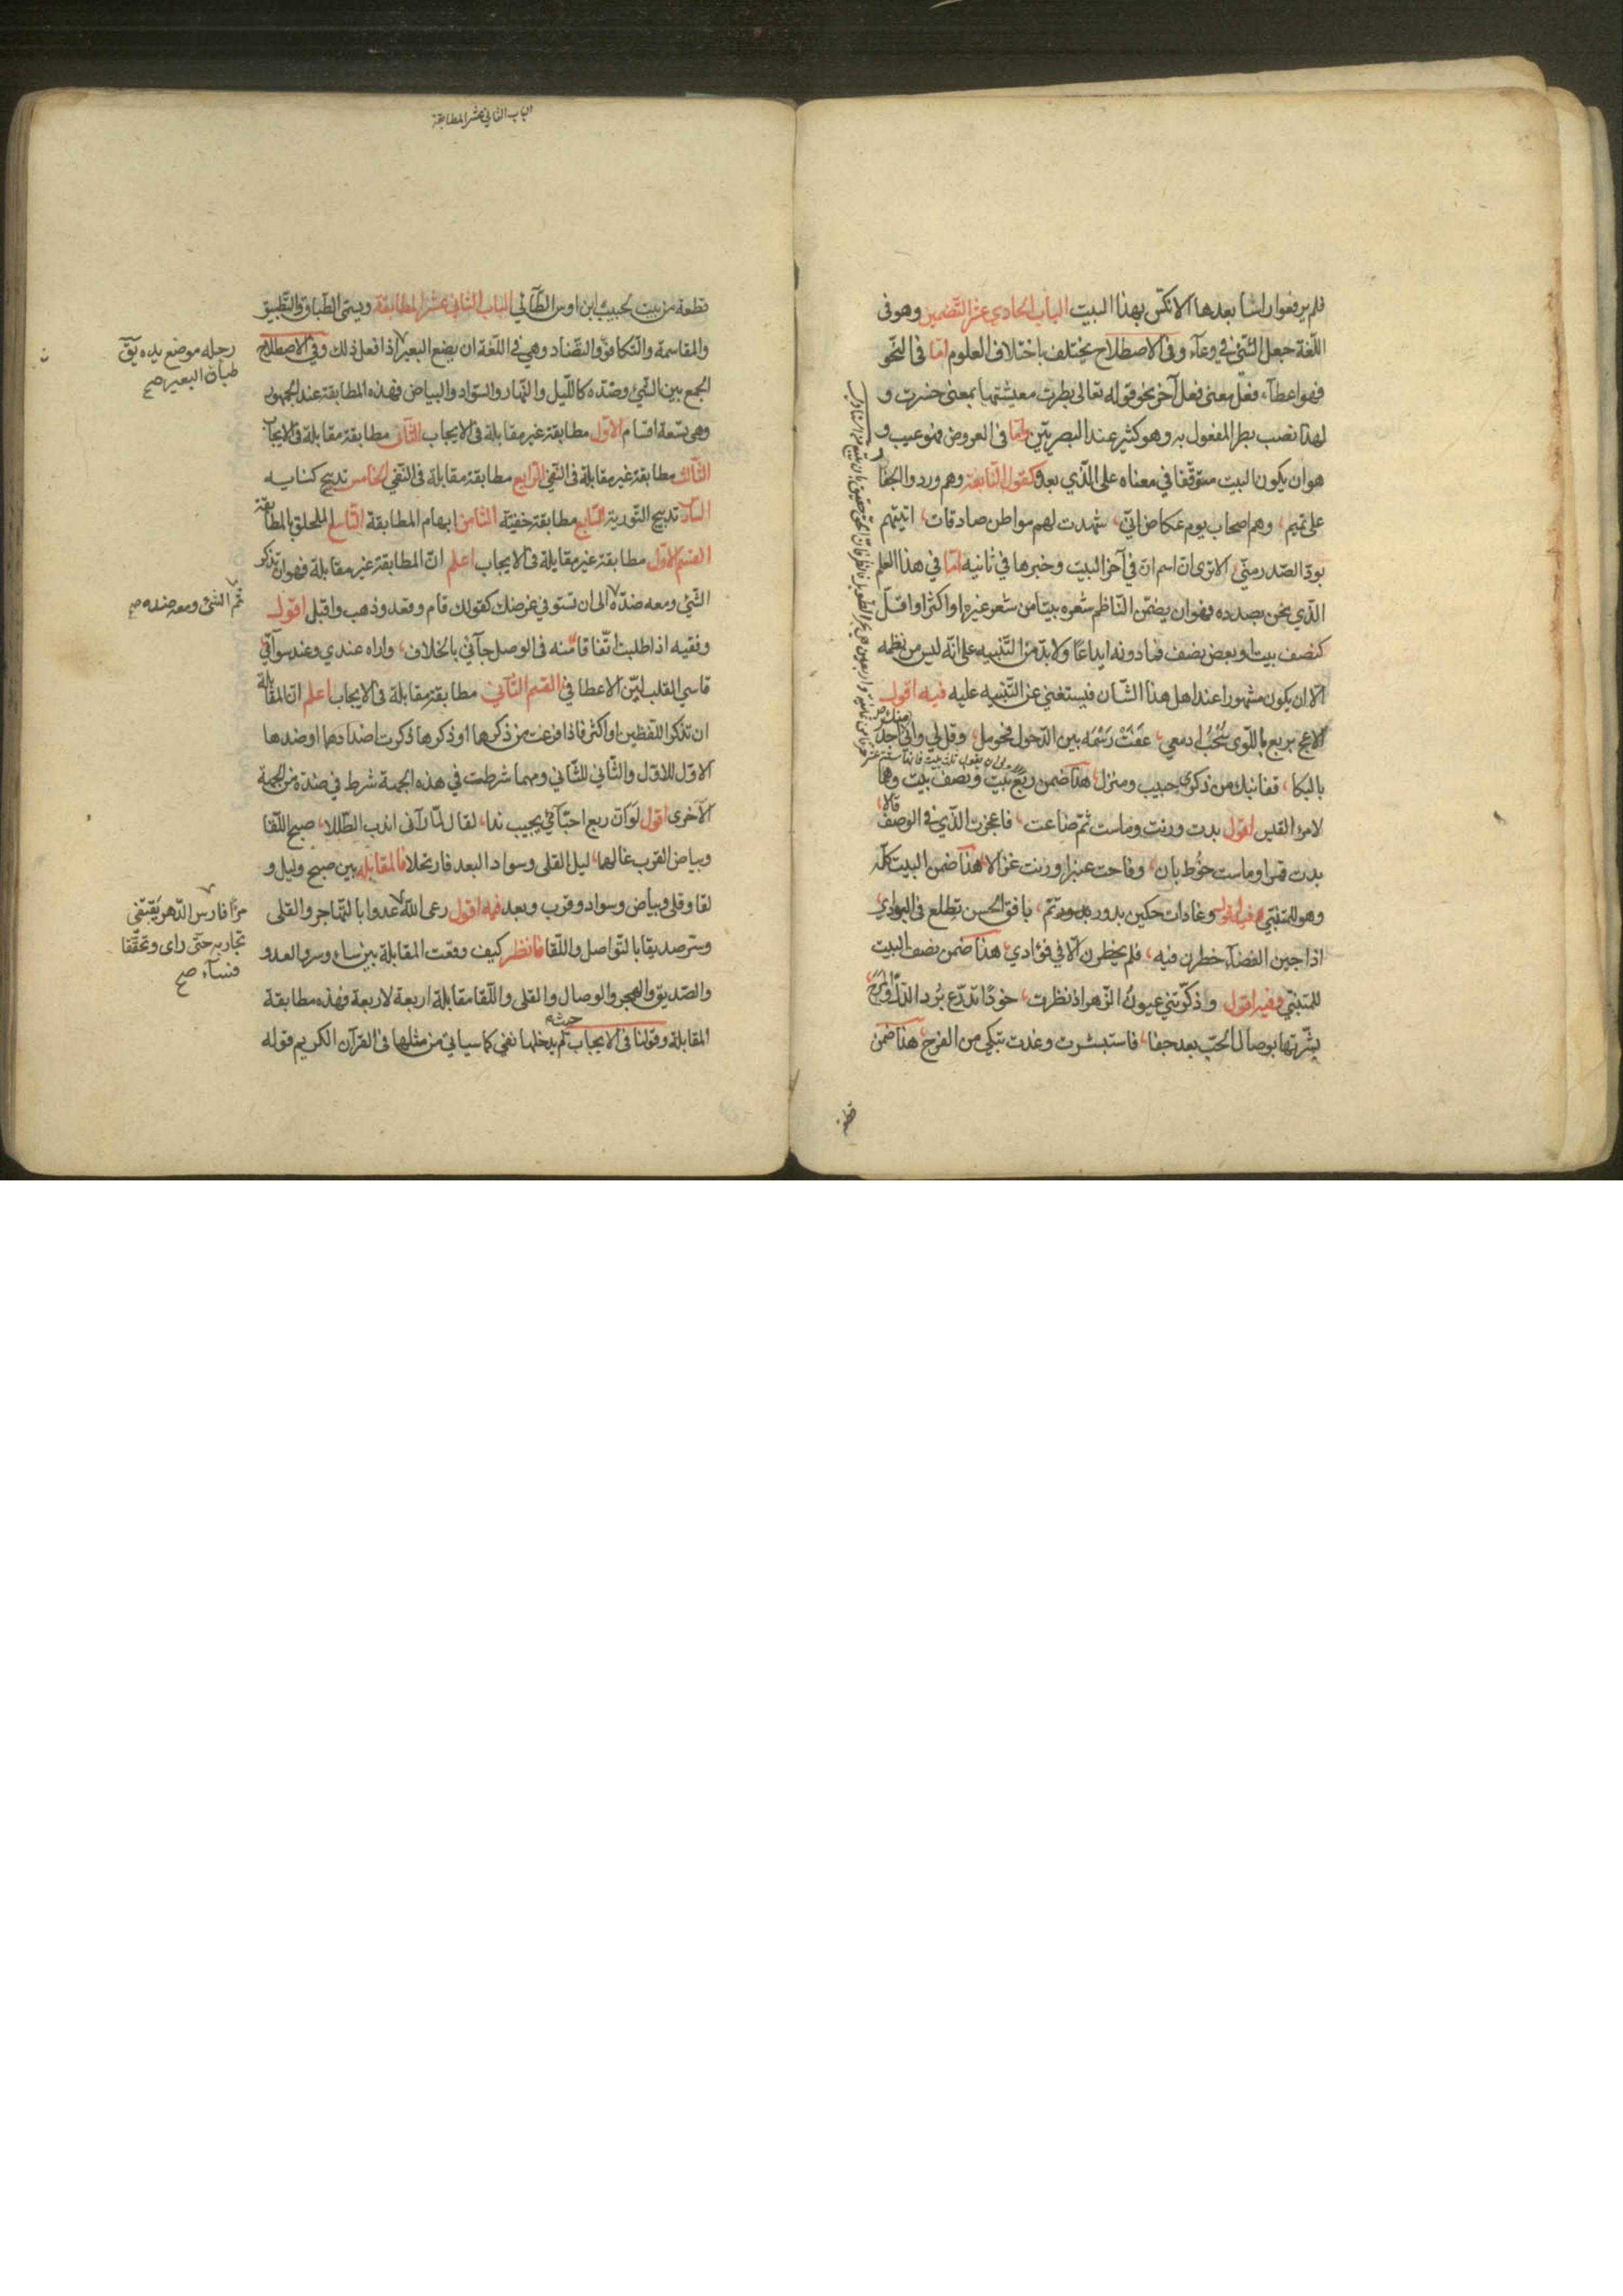 فلم يرفعوا راسا بعدها الا نكس بهذا البيت الباب الحادي عشر التضمين وهو فى
اللغة جعل الشئ في وعآء وفى الاصطلاح يختلف باختلاف العلوم امّا فى النحو
فهو اعطآء فعل معنى فعل آخر نحو قوله تعالى بطرت معيشتها بمعنى خسرت و
لهذا نصب بطر المفعول به وهو كثير عند البصريّين وامّا فى العروض فهو عيب و
هو ان يكون البيت متوقّفا في معناه على الّذي بعده كقول النّابغة وهم وردوا الجفا
على تميم، وهم اصحاب يوم عكاض انّي، شهدت لهم مواطن صادقات، اتيتهم
بودّ الصّدر منّي، الا ترى انّ اسم انّ في آخر البيت وخبرها في ثانيه امّا في هذا العلم
الّذي نحن بصدده فهو ان يضمّن النّاظم شعره بيتا من شعر غيره او اكثر او اقلّ
كنصف بيت او بعض نصف فما دونه ايداعًا ولا بدّ من التّنبيه على انّه ليس من نظمه
الّا ان يكون مشهورا عند اهل هذا الشّان فيستغنى عن التّنبيه عليه فيه اقول
الا عج بربع باللّوى سُحْبُ ادمعي، عَفَتْ رَسْمَه بين الدّخول فحومل، وقل لي وانّي اجد
بالبكا، قفا نبك من ذكرى حبيب ومنزل، هذا ضمن ربع بيت ونصف بيت وهما
لامرئ القيس اقول بدت ورنت وماست ثمّ ضاعت، فاعجزت الّذي في الوصف قالا،
بدت قمرا وماست خُوط بان، وفاحت عنبرا ورنت غزالا، هذا ضمن البيت كلّه
وهو للمتنبّي فيه اقول وغادات حكين بدور تمّ، بافق الحسن تطلع فى البوادي،
اذا جين الفضآء خطرن فيه، فلم يخطرن الّا في فؤادي، هذا ضمن نصف البيت
للمتنبّي وفيه اقول واذكّرتني عيونُ الزّهر اذ نظرت، خودًا تدرّع بُرد الدّلّ والمرح،
بشّرتها بوصال الحبّ بعد جفا، فاستبشرت وغدت تبكي من الفرح، هذا ضمن
قطعة
الباب الثاني عشر المطابقة
قطعة من بيت لحبيب ابن اوس الطّآئي الباب الثاني عشر المطابقة ويسمّى الطّباق والتّطبيق
والمقاسمة والتّكافؤ والتضّاد وهي في اللّغة ان يضع البعير اذا فعل ذلك وفى الاصطلاح
رجله موضع يده يق
طباق البعير صح
الجمع بين الشئ وضدّه كاللّيل والنّهار والسّواد والبياض فهذه المطابقة عند الجمهور
وهى تسعة اقسام الاوّل مطابقة غير مقابلة فى الايجاب الثّانى مطابقة مقابلة فى الايجاب
الثّالث مطابقة غير مقابلة فى النّفي الرّابع مطابقة مقابلة فى النّفي الخامس تدبيج كنايه
السّاد تدبيج التّورية السّابع مطابقة خفيّة الثّامن ابهام المطابقة التّاسع الملحق بالمطابقة
القسم الاوّل مطابقة غير مقابلة فى الايجاب اعلم انّ المطابقة غير مقابلة فهو ان تذكر
الشّئ ومعه ضدّه الى ان تستوفي غرضك كقولك قام وقعد وذهب واقبل اقول
ثم الشئ ومعه ضده صح
وفقيه اذا طلبت اتّفاقا منه فى الوصل جآئني بالخلاف، واراه عندي وعند سوآئي
قاسي القلب ليّن الاعطاف، القسم الثّاني مطابقة مقابلة فى الايجاب اعلم انّ المقابلة
ان تذكر اللّفظين او اكثر فاذا فرغت من ذكرها او ذكرها ذكرت اضدادهما او ضدها
الاوّل للاوّل والثّاني للثّاني ومهما شرطت في هذه الجهة شرط في ضدّه من الجهة
الاخرى اقول لو انّ ربع احبّآئي يجيب ندا، لقال لمّا رآني اندب الطّللا، صبح اللّقا
وبياض القرب غالهما، ليل القلى وسواد البعد فارتحلا فالمقابلة بين صبح وليل و
لقا وقلى وبياض وسواد وقرب وبعد فيه اقول رعى اللّه عدوا بالتّهاجر والقلى
مرّا فارس الدّهر يقتفى
تجاربه حتّى راى وتحقّقا
فسآء صح
وسرّ صديقا بالتّواصل واللّقا فانظر كيف وقعت المقابلة بين ساء وسر والعدو
والصّديق والهجر والوصال والقلى واللّقا مقابلة اربعة لاربعة فهذه مطابقة
المقابلة وقولنا فى الايجاب لم يدخلها نفي كما سياتي من مثلها فى القرآن الكريم قوله